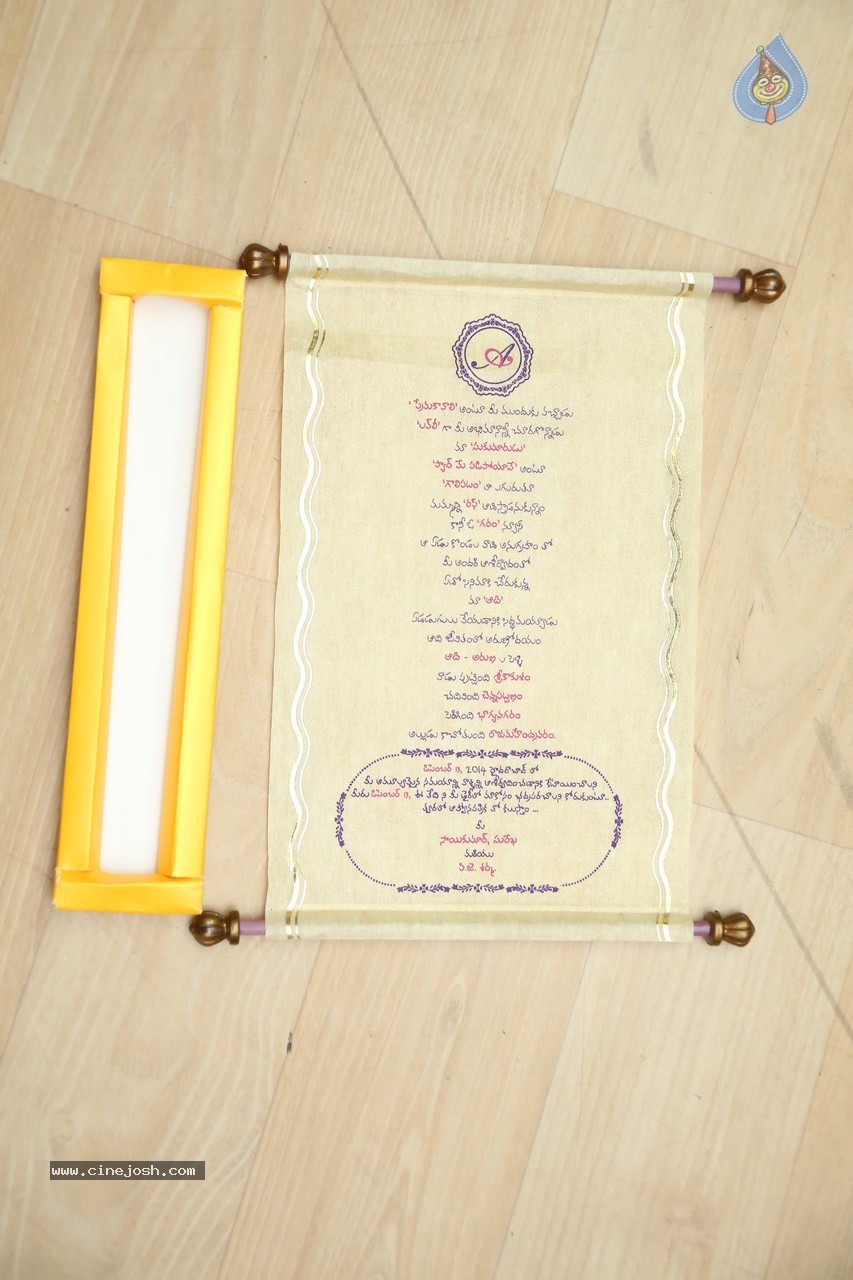 A
'ప్రేమకావాలి' అంటూ మీ ముందుకు వచ్చాడు
'లవ్‌లీ' గా మీ అభిమానాన్ని చూరగొన్నాడు
మా 'సుకుమారుడు'
'ప్యార్ మే పడిపోయానే' అంటూ
'గాలిపటం' లా ఎగురుతూ
మమ్మల్ని 'రఫ్' ఆడిస్తాడనుకున్నాం
కానీ ఓ 'గరం' న్యూస్
ఆ ఏడు కొండల వాడి అనుగ్రహం తో
మీ అందరి ఆశీర్వాదంతో
మా 'ఆది'
ఏడడుగులు వేయడానికి సిద్ధమయ్యాడు
ఆది జీవితంలో అరుణోదయం
ఆది - అరుణ ల పెళ్ళి
వాడు పుట్టింది శ్రీకాకుళం
చదివింది చెన్నపట్టణం
పెరిగింది భాగ్యనగరం
అల్లుడు కాబోతుంది రాజమహేంద్రవరం.
డిసెంబర్ 13, 2014 హైదరాబాద్ లో
మీ అమూల్యమైన సమయాన్ని వాళ్ళని ఆశీర్వదించడానికి కేటాయించాలని
మీరు డిసెంబర్ 13, ఈ తేది ని మీ డైరీలో మాకోసం భద్రపరచాలని కోరుకుంటూ..
త్వరలో ఆహ్వానపత్రిక తో కలుస్తాం ...
మీ
సాయికుమార్, సురేఖ
మరియు
పి.జె. శర్మ.
www.cinejosh.com